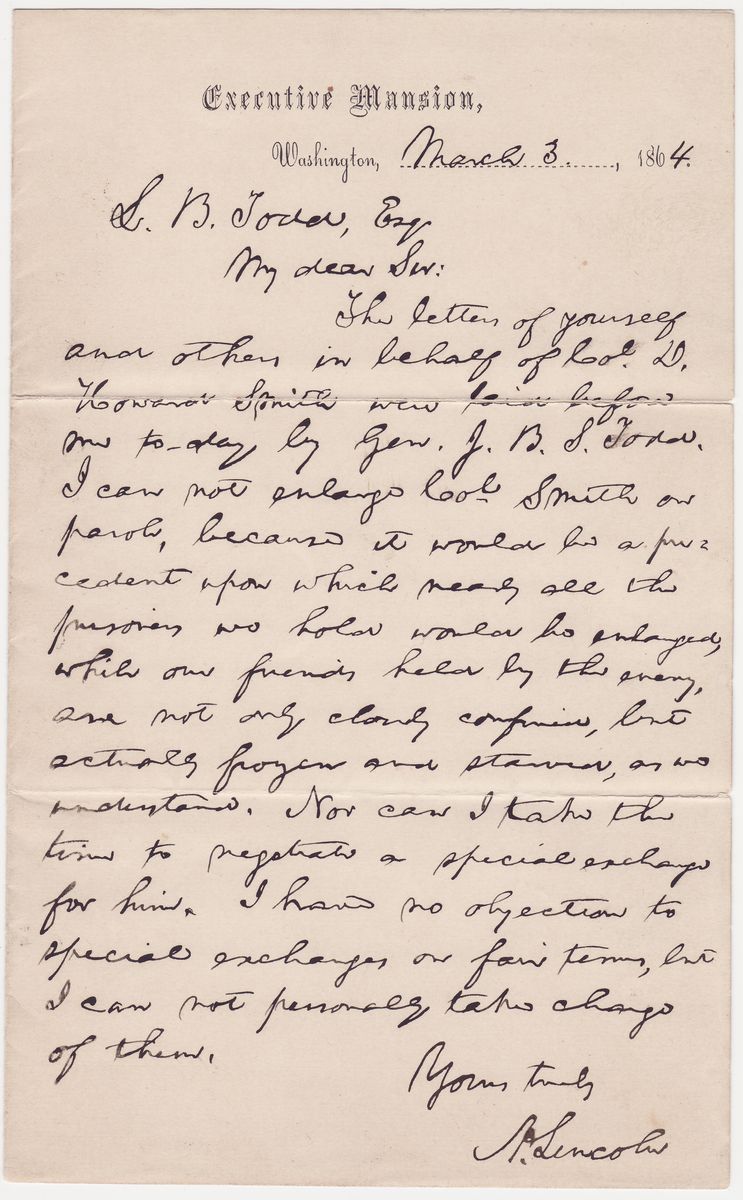 Executive Mansion,
Washington, March 3. , 1864.
L. B. Todd, Esq
My dear Sir:
The letters of yourself
and others in behalf of Col. D.
Howard Smith were laid before
me to-day by Gen. J. B. S. Todd.
I can not enlarge Col. Smith on
parole, because it would be a pre=
cedent upon which nearly all the
prisoners we hold would be enlarged,
while our friends held by the enemy,
are not only closely confined, but
actually frozen and starved, as we
understand. Nor can I take the
time to negotiate a special exchange
for him. I have no objection to
special exchanges on fair terms, but
I can not personally take charge
of them.
Yours truly
A. Lincoln